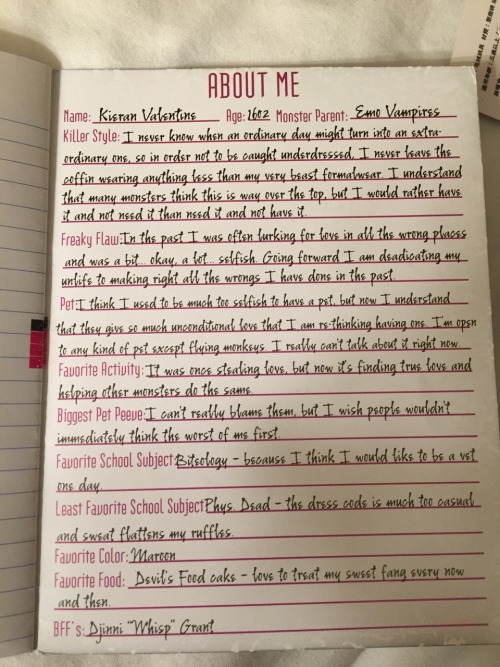 ABOUT ME
Name: Kieran Valentine Age: 1602 Monster Parent: Emo Vampires
Killer Style: I never know when an ordinary day might turn into an extra-
ordinary one, so in order not to be caught underdressed, I never leave the
coffin wearing anything less than my very beast formalwear. I understand
that many monsters think this is way over the top, but I would rather have
it and not need it than need it and not have it.
Freaky Flaw: In the past I was often lurking for love in all the wrong places
and was a bit... okay, a lot... selfish. Going forward I am deadicating my
unlife to making right all the wrongs I have done in the past.
Pet: I think I used to be much too selfish to have a pet, but now I understand
that they give so much unconditional love that I am re-thinking having one. I'm open
to any kind of pet except flying monkeys. I really can't talk about it right now.
Favorite Activity: It was once stealing love, but now it's finding true love and
helping other monsters do the same.
Biggest Pet Peeve: I can't really blame them, but I wish people wouldn't
immediately think the worst of me first.
Favorite School Subject: Biteology - because I think I would like to be a vet
one day.
Least Favorite School Subject: Phys. Dead - the dress code is much too casual
and sweat flattens my ruffles.
Favorite Color: Maroon
Favorite Food: Devil's Food cake - love to treat my sweet fang every now
and then.
BFF's: Djinni "Whisp" Grant